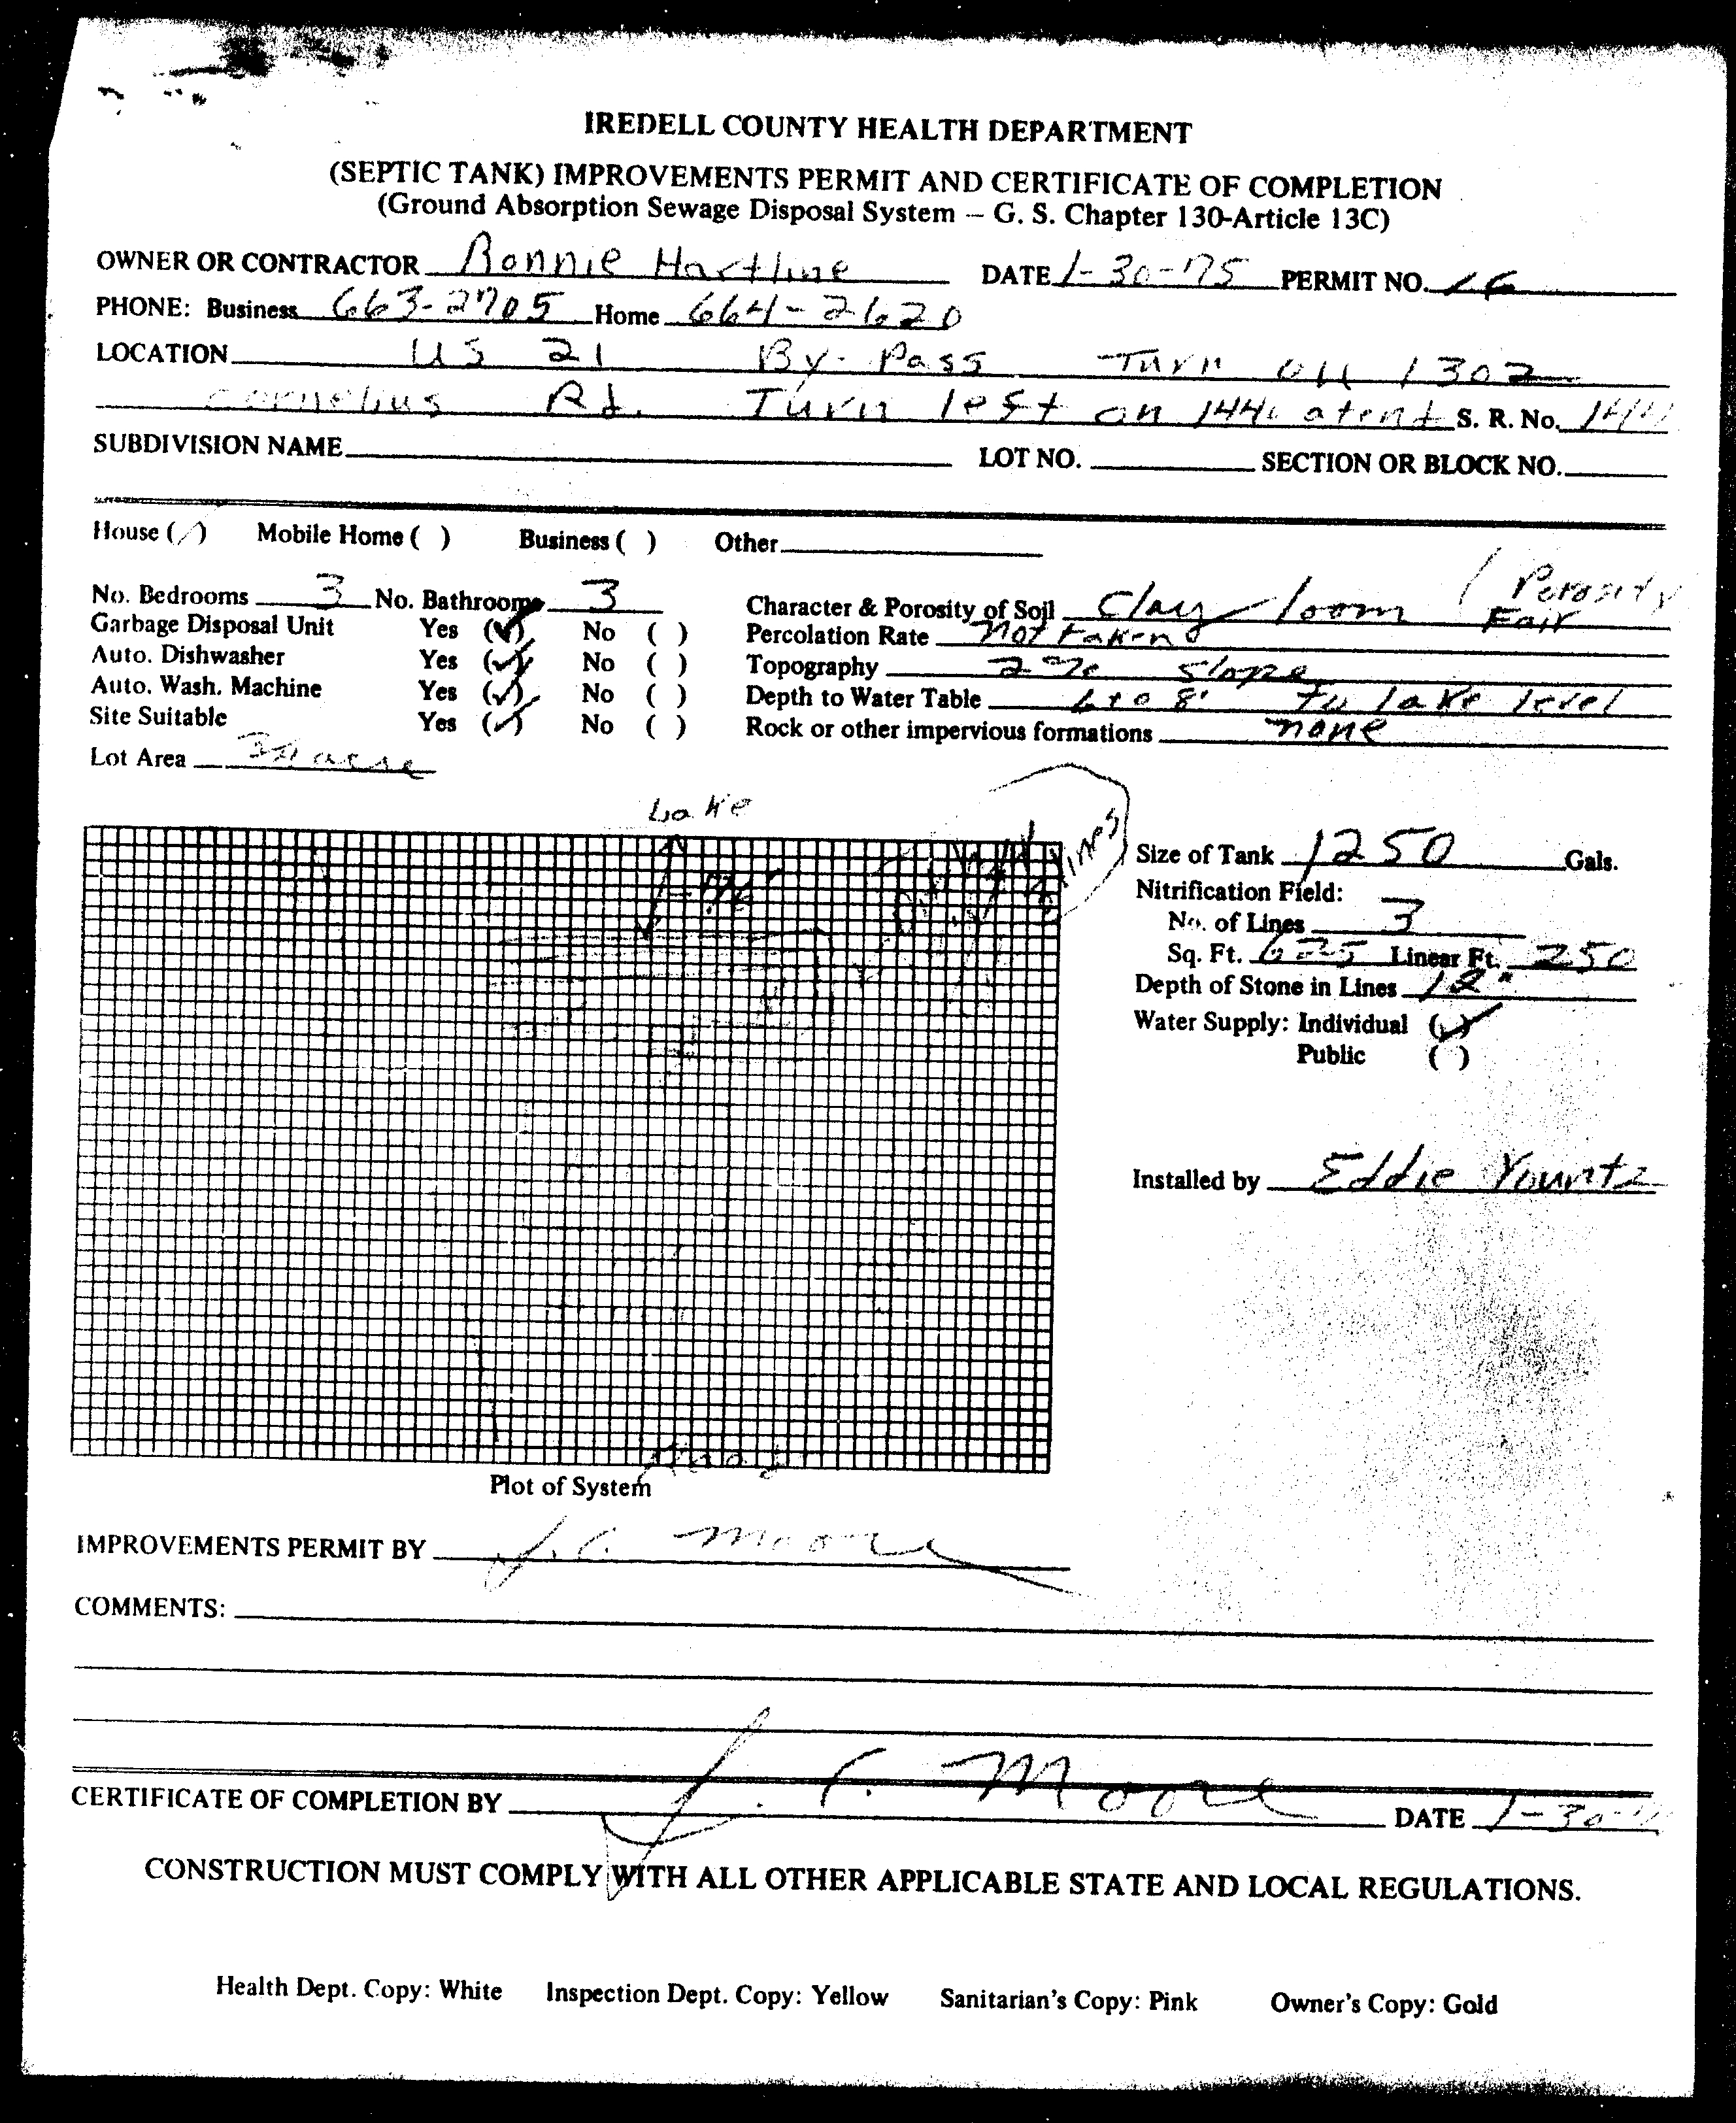 IREDELL COUNTY HEALTH DEPARTMENT
(SEPTIC TANK) IMPROVEMENTS PERMIT AND CERTIFICATE OF COMPLETION
(Ground Absorption Sewage Disposal System – G. S. Chapter 130-Article 13C)
OWNER OR CONTRACTOR Ronnie Hartline DATE 1-30-75 PERMIT NO. 16
PHONE: Business 663-2705 Home 664-2620
LOCATION US 21 By-Pass Turn on 1302
Cornelius Rd. Turn left on at end S. R. No.
SUBDIVISION NAME LOT NO. SECTION OR BLOCK NO.
House (✓) Mobile Home ( ) Business ( ) Other
No. Bedrooms 3 No. Bathrooms 3
Garbage Disposal Unit Yes (✓) No ( )
Auto. Dishwasher Yes (✓) No ( )
Auto. Wash. Machine Yes (✓) No ( )
Site Suitable Yes (✓) No ( )
Lot Area acre
Character & Porosity of Soil Clay loom / Porosity Fair
Percolation Rate Not taken
Topography 2% Slope
Depth to Water Table 6 to 8' to lake level
Rock or other impervious formations none
Lake
lines
Size of Tank 1250 Gals.
Nitrification Field:
No. of Lines 3
Sq. Ft. 625 Linear Ft. 250
Depth of Stone in Lines 12"
Water Supply: Individual (✓)
Public ( )
Installed by Eddie Yountz
Road
Plot of System
IMPROVEMENTS PERMIT BY J. C. Moore
COMMENTS:
CERTIFICATE OF COMPLETION BY J. C. Moore DATE 1-30-
CONSTRUCTION MUST COMPLY WITH ALL OTHER APPLICABLE STATE AND LOCAL REGULATIONS.
Health Dept. Copy: White Inspection Dept. Copy: Yellow Sanitarian's Copy: Pink Owner's Copy: Gold